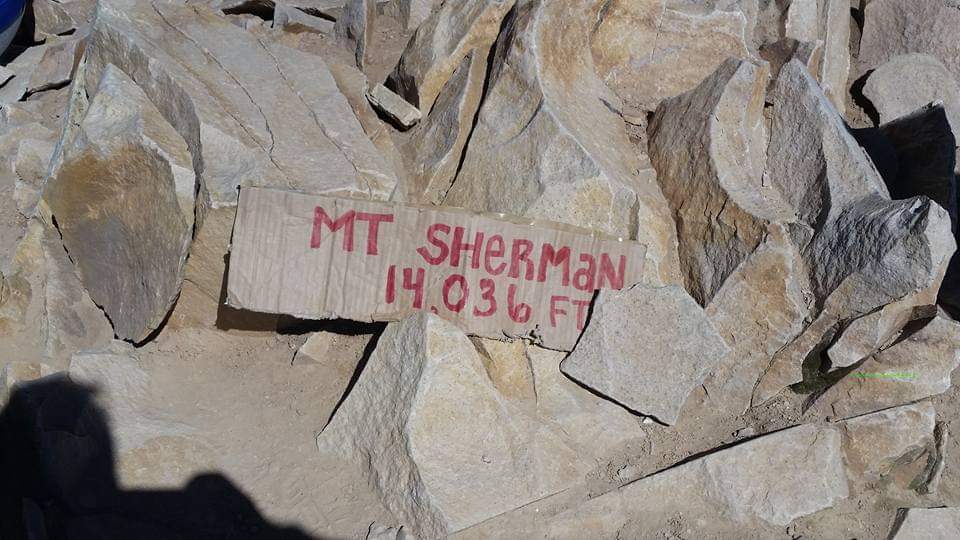 MT SHERMAN
14,036 FT